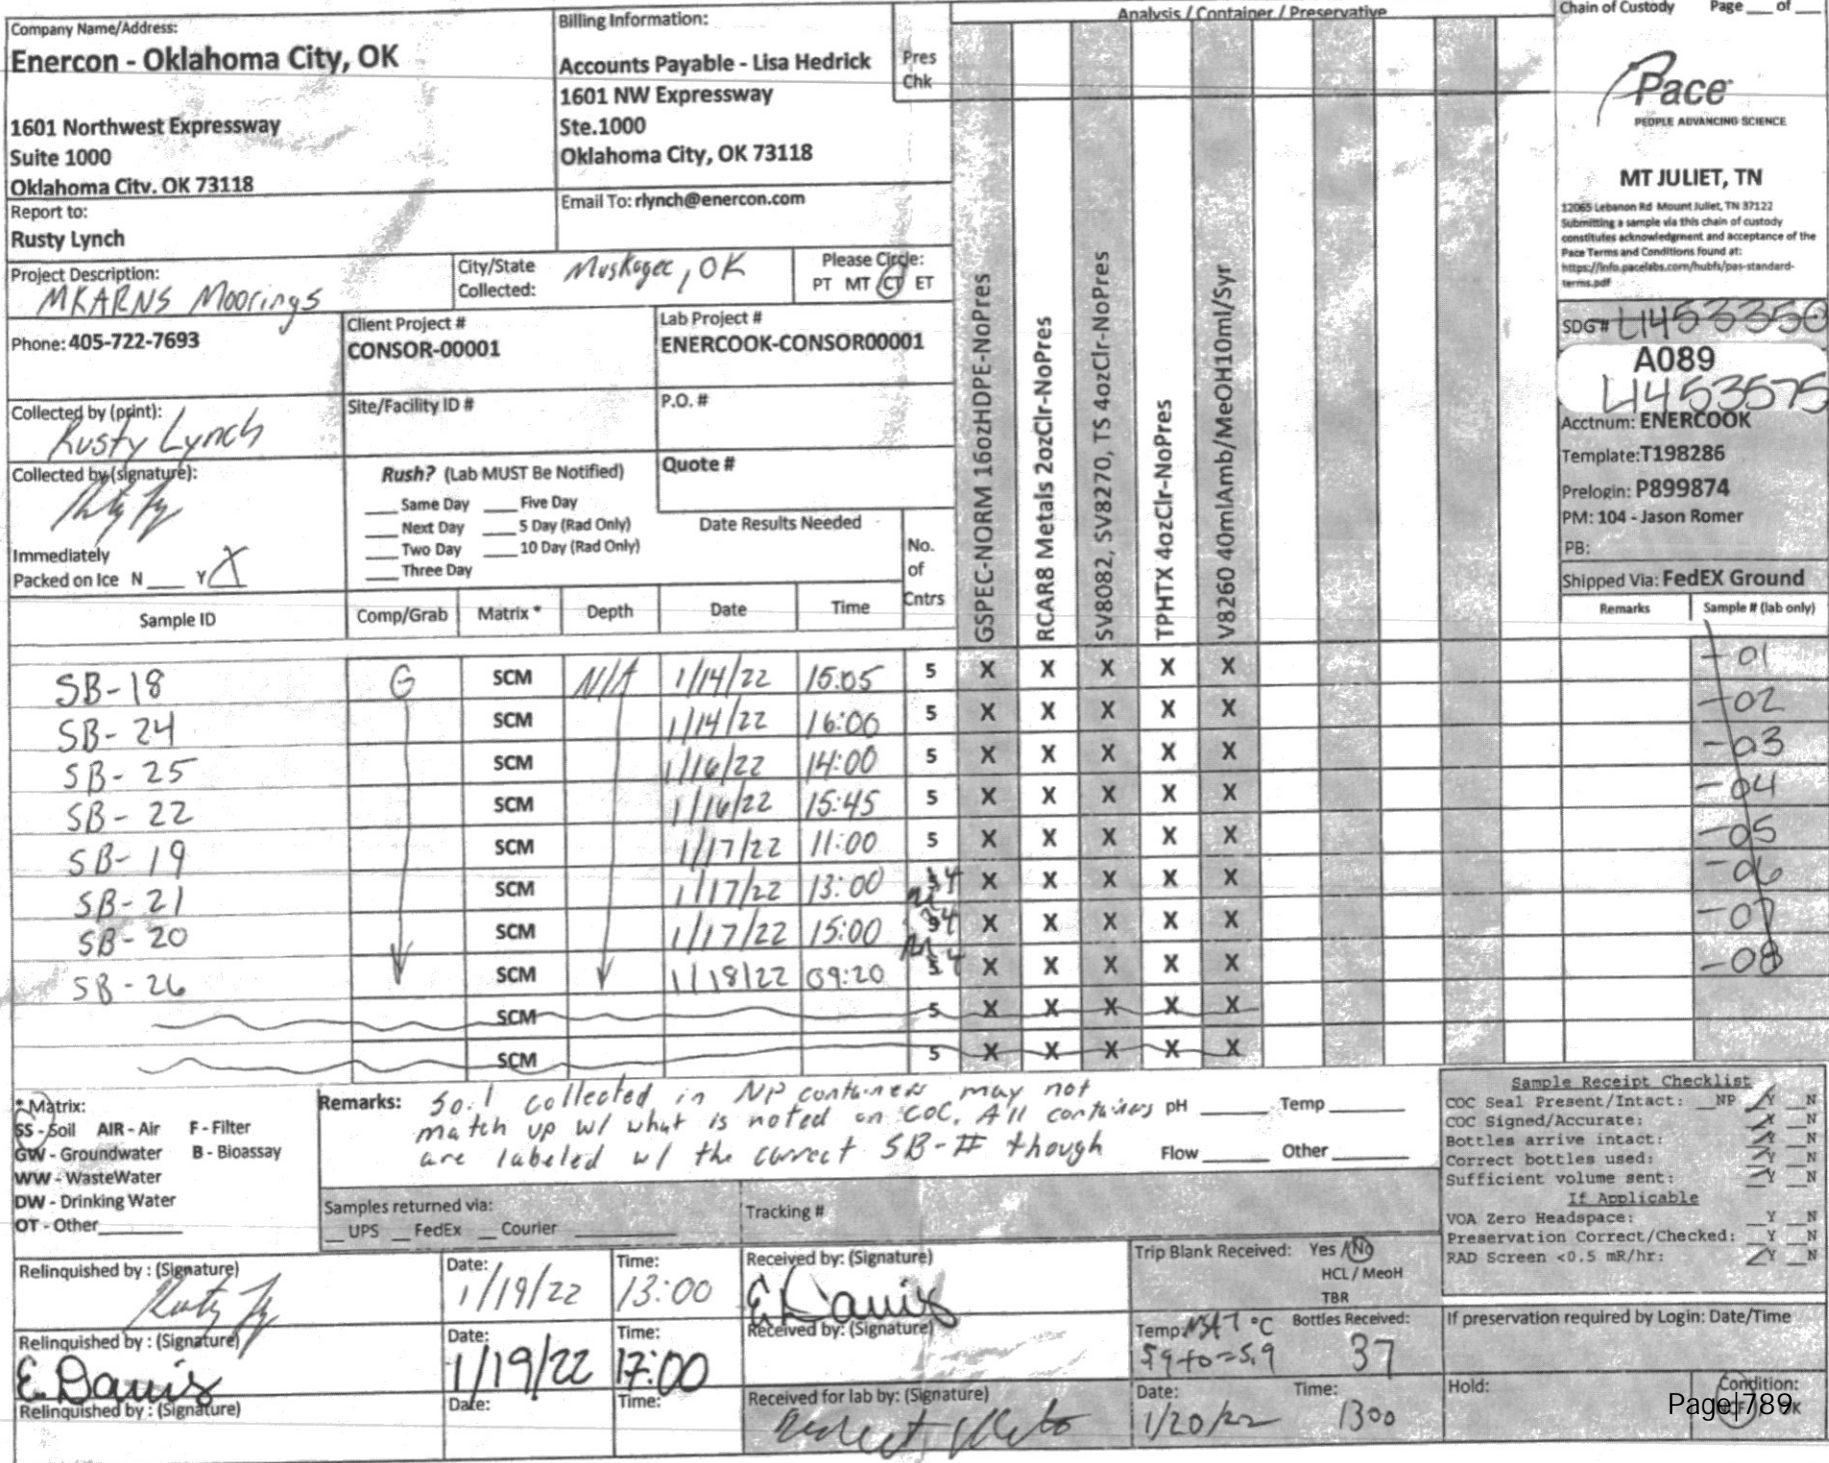 Company Name/Address:
Enercon - Oklahoma City, OK
1601 Northwest Expressway
Suite 1000
Oklahoma City, OK 73118
Billing Information:
Accounts Payable - Lisa Hedrick
1601 NW Expressway
Ste.1000
Oklahoma City, OK 73118
Pres
Chk
Analysis / Container / Preservative
Chain of Custody Page ___ of ___
Pace
PEOPLE ADVANCING SCIENCE
MT JULIET, TN
12065 Lebanon Rd Mount Juliet, TN 37122
Submitting a sample via this chain of custody
constitutes acknowledgment and acceptance of the
Pace Terms and Conditions found at:
https://info.pacelabs.com/hubfs/pas-standard-
terms.pdf
Report to:
Rusty Lynch
Email To: rlynch@enercon.com
Project Description:
MKARNS Moorings
City/State
Collected:
Muskogee, OK
Please Circle:
PT MT CT ET
Phone: 405-722-7693
Client Project #
CONSOR-00001
Lab Project #
ENERCOOK-CONSOR00001
Collected by (print):
Rusty Lynch
Site/Facility ID #
P.O. #
Collected by (signature):
Rush? (Lab MUST Be Notified)
___ Same Day ___ Five Day
___ Next Day ___ 5 Day (Rad Only)
___ Two Day ___ 10 Day (Rad Only)
___ Three Day
Quote #
Date Results Needed
Immediately
Packed on Ice N ___ Y X
No.
of
Cntrs
GSPEC-NORM 16ozHDPE-NoPres
RCAR8 Metals 2ozClr-NoPres
SV8082, SV8270, TS 4ozClr-NoPres
TPHTX 4ozClr-NoPres
V8260 40mlAmb/MeOH10ml/Syr
SDG # L1453350
A089
L1453575
Acctnum: ENERCOOK
Template: T198286
Prelogin: P899874
PM: 104 - Jason Romer
PB:
Shipped Via: FedEX Ground
Sample ID Comp/Grab Matrix * Depth Date Time Remarks Sample # (lab only)
SB-18 G SCM N/A 1/14/22 15:05 5 X X X X X -01
SB-24 SCM 1/14/22 16:00 5 X X X X X -02
SB-25 SCM 1/16/22 14:00 5 X X X X X -03
SB-22 SCM 1/16/22 15:45 5 X X X X X -04
SB-19 SCM 1/17/22 11:00 5 X X X X X -05
SB-21 SCM 1/17/22 13:00 5 4 X X X X X -06
SB-20 SCM 1/17/22 15:00 5 4 X X X X X -07
SB-26 SCM 1/18/22 09:20 5 4 X X X X X -08
SCM 5 X X X X X
SCM 5 X X X X X
* Matrix:
SS - Soil AIR - Air F - Filter
GW - Groundwater B - Bioassay
WW - WasteWater
DW - Drinking Water
OT - Other
Remarks: Soil collected in NP containers may not
match up w/ what is noted on COC. All containers
are labeled w/ the correct SB-# though
pH ___ Temp ___
Flow ___ Other ___
Samples returned via:
__ UPS __ FedEx __ Courier
Tracking #
Sample Receipt Checklist
COC Seal Present/Intact: __NP Y __N
COC Signed/Accurate: Y __N
Bottles arrive intact: Y __N
Correct bottles used: Y __N
Sufficient volume sent: Y __N
If Applicable
VOA Zero Headspace: __Y __N
Preservation Correct/Checked: __Y __N
RAD Screen <0.5 mR/hr: Y __N
Relinquished by : (Signature)
Date:
1/19/22
Time:
13:00
Received by: (Signature)
E. Davis
Trip Blank Received: Yes / No
HCL / MeoH
TBR
Relinquished by : (Signature)
E. Davis
Date:
1/19/22
Time:
17:00
Received by: (Signature)
Temp °C
5.9+0=5.9
Bottles Received:
37
If preservation required by Login: Date/Time
Relinquished by : (Signature)
Date:
Time:
Received for lab by: (Signature)
Date:
1/20/22
Time:
1300
Hold:
Condition:
NCF / OK
Page|789